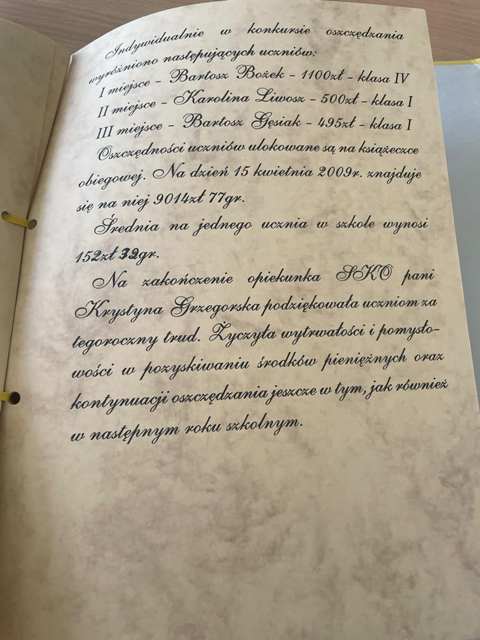 Indywidualnie w konkursie oszczędzania
wyróżniono następujących uczniów:
I miejsce - Bartosz Bożek - 1100zł - klasa IV
II miejsce - Karolina Liwosz - 500zł - klasa I
III miejsce - Bartosz Gęsiak - 495zł - klasa I
Oszczędności uczniów ulokowane są na książeczce
obiegowej. Na dzień 15 kwietnia 2009r. znajduje
się na niej 9014zł 77gr.
Średnia na jednego ucznia w szkole wynosi
152zł gr.
Na zakończenie opiekunka SKO pani
Krystyna Grzegorska podziękowała uczniom za
tegoroczny trud. Życzyła wytrwałości i pomysło-
wości w pozyskiwaniu środków pieniężnych oraz
kontynuacji oszczędzania jeszcze w tym, jak również
w następnym roku szkolnym.